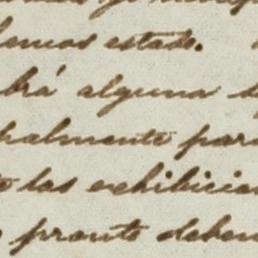 hemos estado.
brá alguna
palmente para
las exhibicion
pronto deben